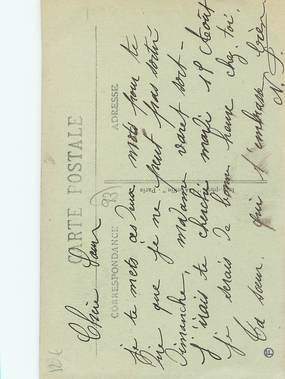 CARTE POSTALE
CORRESPONDANCE
ADRESSE
93
Chère Sœur
je te mets ces deux mots pour te
dire que je ne peut pas sortir
Dimanche, madame varet sort -
J'irais te cherché mardi 18 Août
je serais de bonne heure chez toi.
Ta sœur qui t'embrasse bien
N.